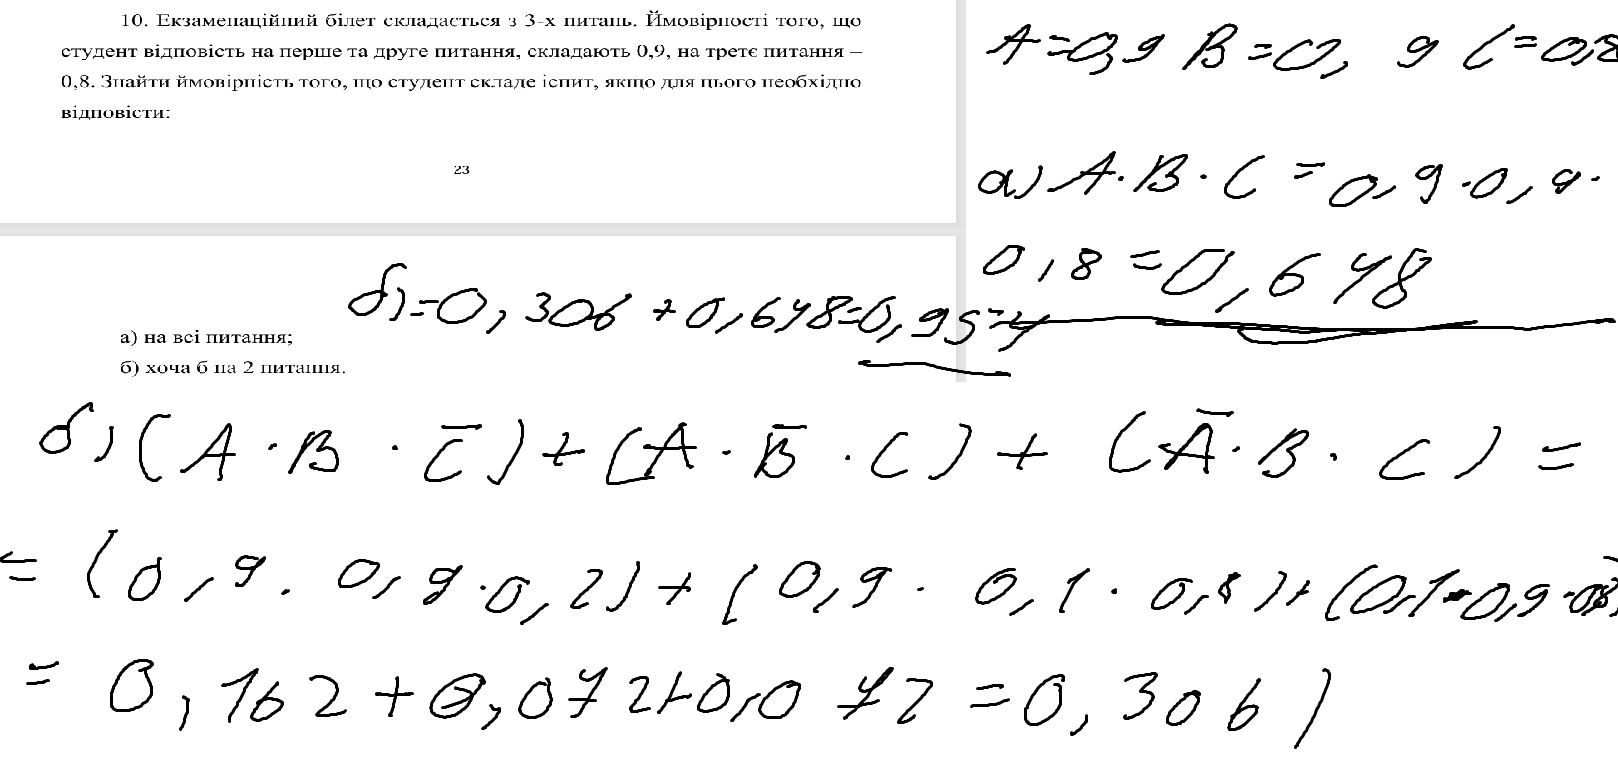 10. Екзаменаційний білет складається з 3-х питань. Ймовірності того, що
студент відповість на перше та друге питання, складають 0,9, на третє питання –
0,8. Знайти ймовірність того, що студент складе іспит, якщо для цього необхідно
відповісти:
23
а) на всі питання;
б) хоча б на 2 питання.
A=0,9 B=0, 9 C=0,8
а) A·B·C = 0,9·0,9·
0,8=0,648
б)=0,306+0,648=0,954
б) (A·B·C̅)+(A·B̅·C)+(A̅·B·C)=
=(0,9·0,9·0,2)+(0,9·0,1·0,8)+(0,1·0,9·0,8)
=0,162+0,072+0,072=0,306)